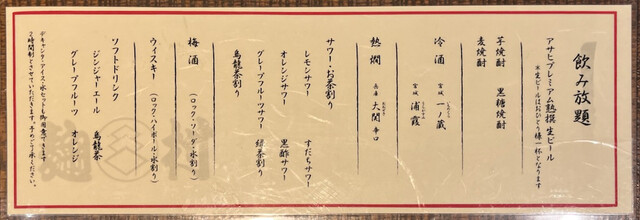 飲み放題
アサヒプレミアム熟撰 生ビール
※生ビールはおひとり様一杯となります
芋焼酎 黒糖焼酎
麦焼酎
冷酒 宮城 一ノ蔵
宮城 浦霞
熱燗 兵庫 大関 辛口
サワー・お茶割り
レモンサワー すだちサワー
オレンジサワー 黒酢サワー
グレープフルーツサワー 緑茶割り
烏龍茶割り
梅酒 (ロック・ソーダ・水割り)
ウィスキー (ロック・ハイボール・水割り)
ソフトドリンク
ジンジャーエール 烏龍茶
グレープフルーツ オレンジ
デキャンタ・アイス・水セットも御用意できます
2時間制とさせていただきます。予めご了承ください。